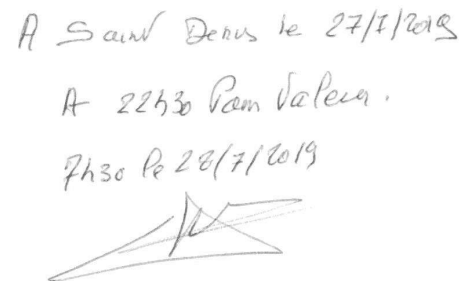 A Saint Denis le 27/7/2019
A 22h30 Pour Valeur.
7h30 le 28/7/2019